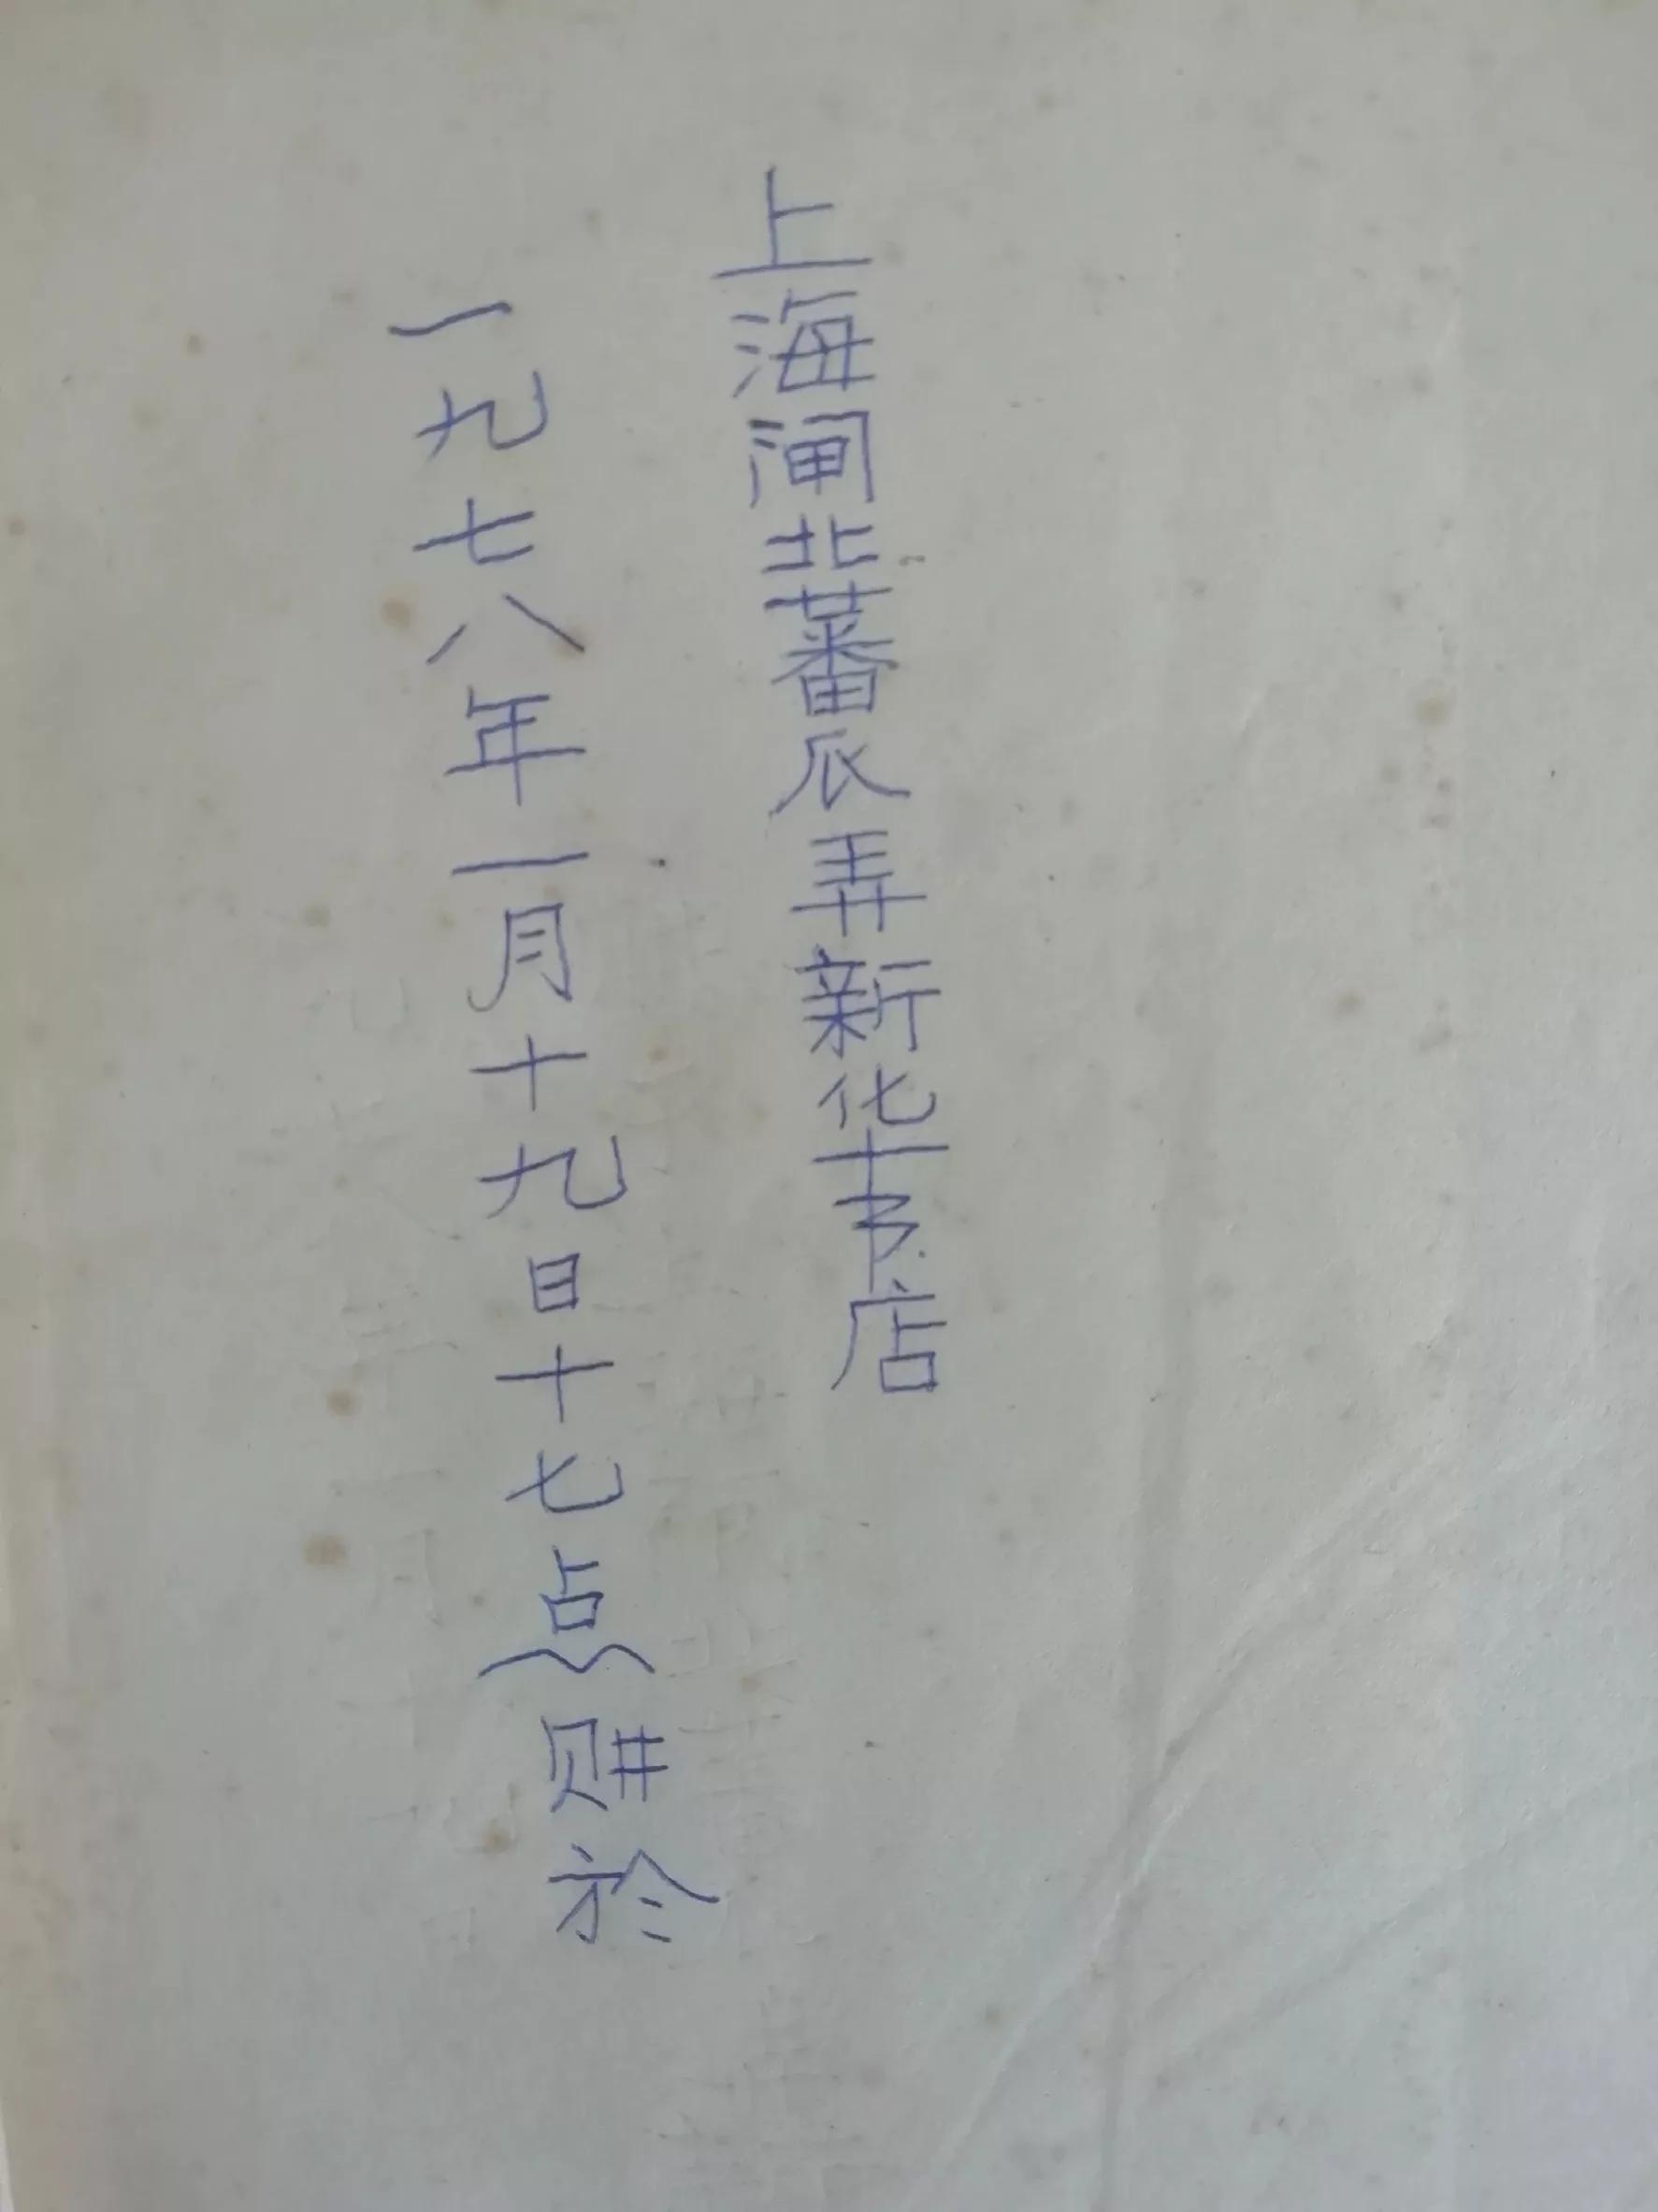 一九七八年一月十九日十七点购於
上海闸北蕃瓜弄新华书店